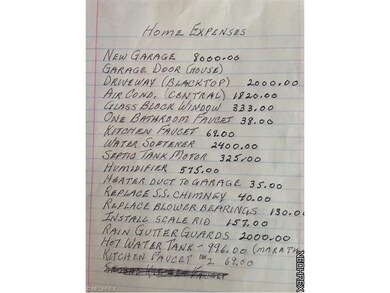 HOME EXPENSES
NEW GARAGE 8000.00
GARAGE DOOR (HOUSE)
DRIVEWAY (BLACKTOP) 2000.00
AIR COND. (CENTRAL) 1820.00
GLASS BLOCK WINDOW 333.00
ONE BATHROOM FAUCET 38.00
KITCHEN FAUCET 69.00
WATER SOFTENER 2400.00
SEPTIC TANK MOTOR 325.00
HUMIDIFIER 575.00
HEATER DUCT TO GARAGE 35.00
REPLACE S.S. CHIMNEY 40.00
REPLACE BLOWER BEARINGS 130.00
INSTALL SCALE RID 157.00
RAIN GUTTER GUARDS 2000.00
HOT WATER TANK - 996.00 (MARATH
KITCHEN FAUCET #2 69.00
NEOHREX